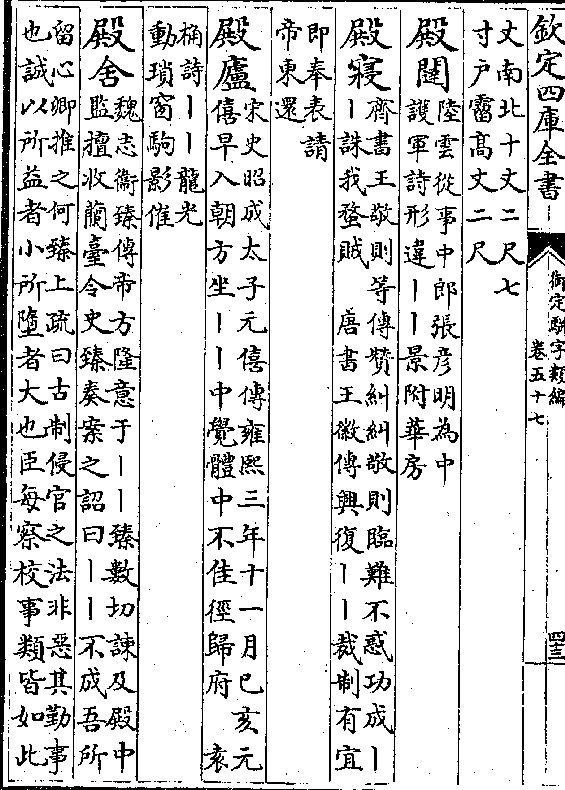 欽定四庫全書
御定駢字類編
卷五十七
四十三
丈南北十丈二尺七
寸戶霤高丈二尺
殿闥
陸雲從事中郎張彥明為中
護軍詩形違丨丨景附華房
殿寢
齊書王敬則等傳贊糾糾敬則臨難不惑功成丨
丨誅我蝥賊 唐書王徽傳興復丨丨裁制有宜
即奉表請
帝東還
殿廬
宋史昭成太子元僖傳雍熙三年十一月己亥元
僖早入朝方坐丨丨中覺體中不佳徑歸府 袁
桷詩丨丨龍光
動瑣窗駒影催
殿舍
魏志衞臻傳帝方隆意于丨丨臻數切諫及殿中
監擅收蘭臺令史臻奏案之詔曰丨丨不成吾所
留心卿推之何臻上疏曰古制侵官之法非惡其勤事
也誠以所益者小所墮者大也臣每察校事類皆如此